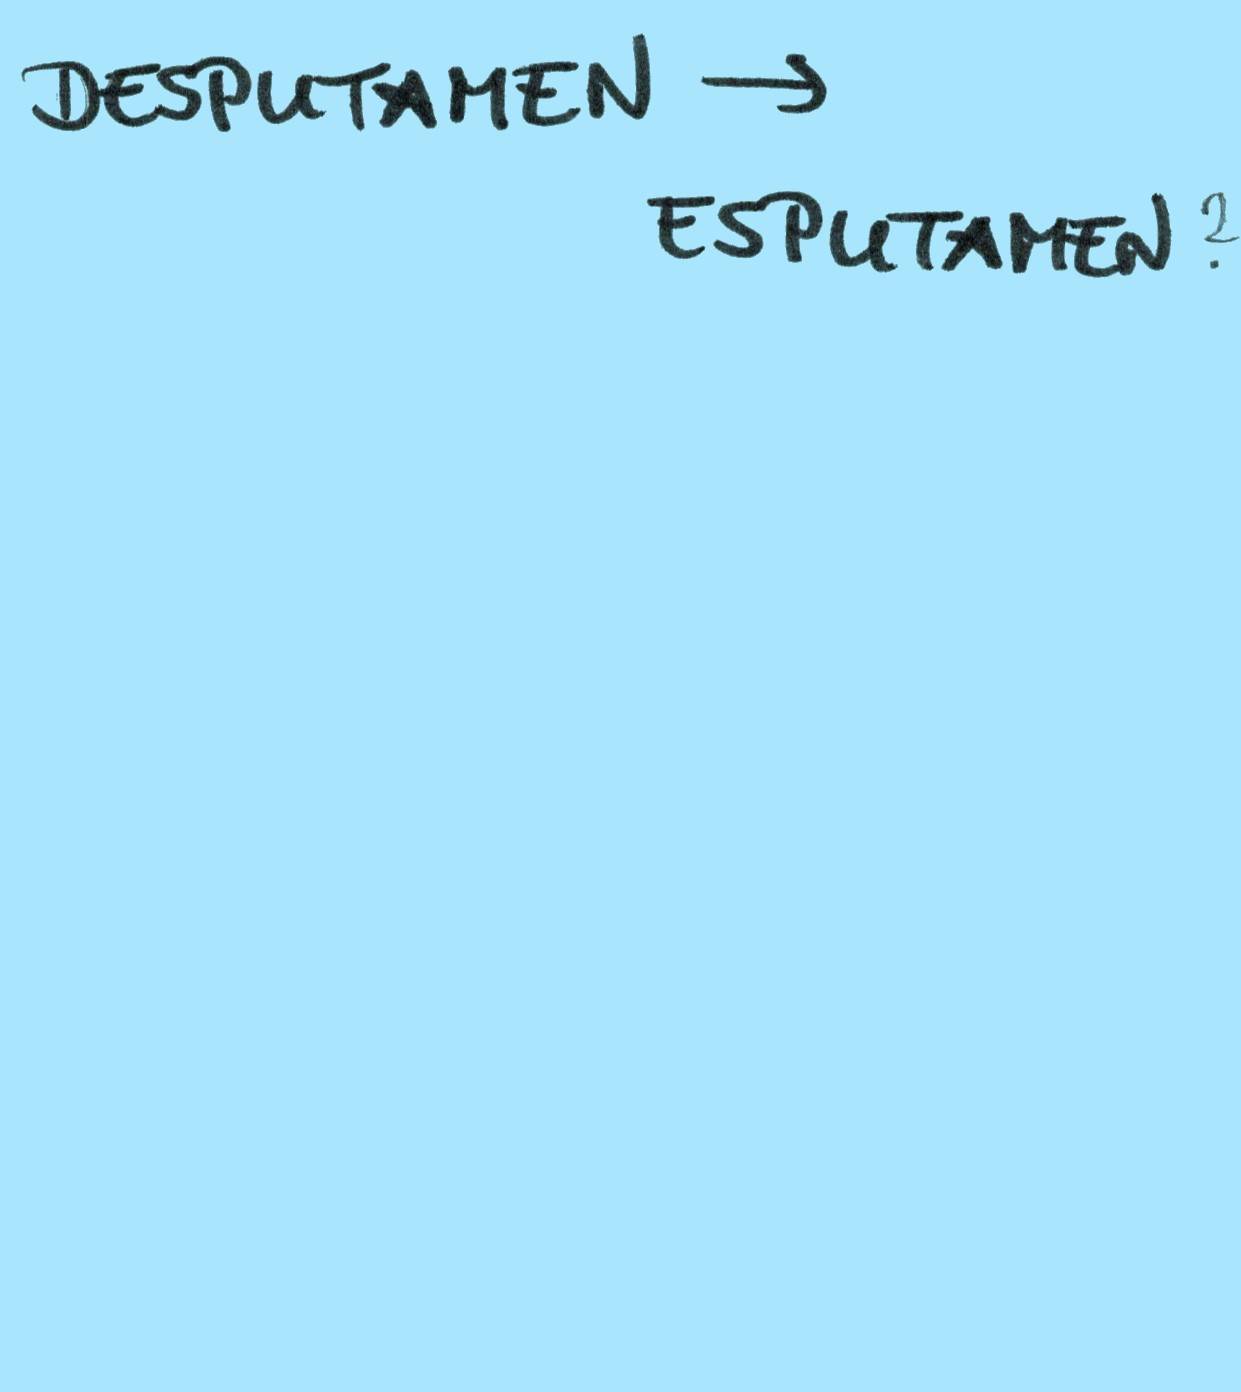 DESPUTAMEN →
ESPUTAMEN?